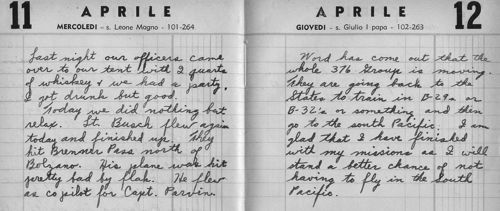 11 APRILE
MERCOLEDI - s. Leone Magno - 101-264
Last night our officers came
over to our tent with 2 quarts
of whiskey & we had a party.
I got drunk but good.
Today we did nothing but
relax. Lt. Busch flew again
today and finished up. They
hit Brenner Pass north of
Bolzano. His plane was hit
pretty bad by flak. He flew
as copilot for Capt. Parvin.
APRILE 12
GIOVEDI - s. Giulio I papa - 102-263
Word has come out that the
whole 376 Group is moving.
They are going back to the
States to train in B-29s or
B-32s or something and then
go to the South Pacific. I am
glad that I have finished
with my missions as I will
stand a better chance of not
having to fly in the South
Pacific.